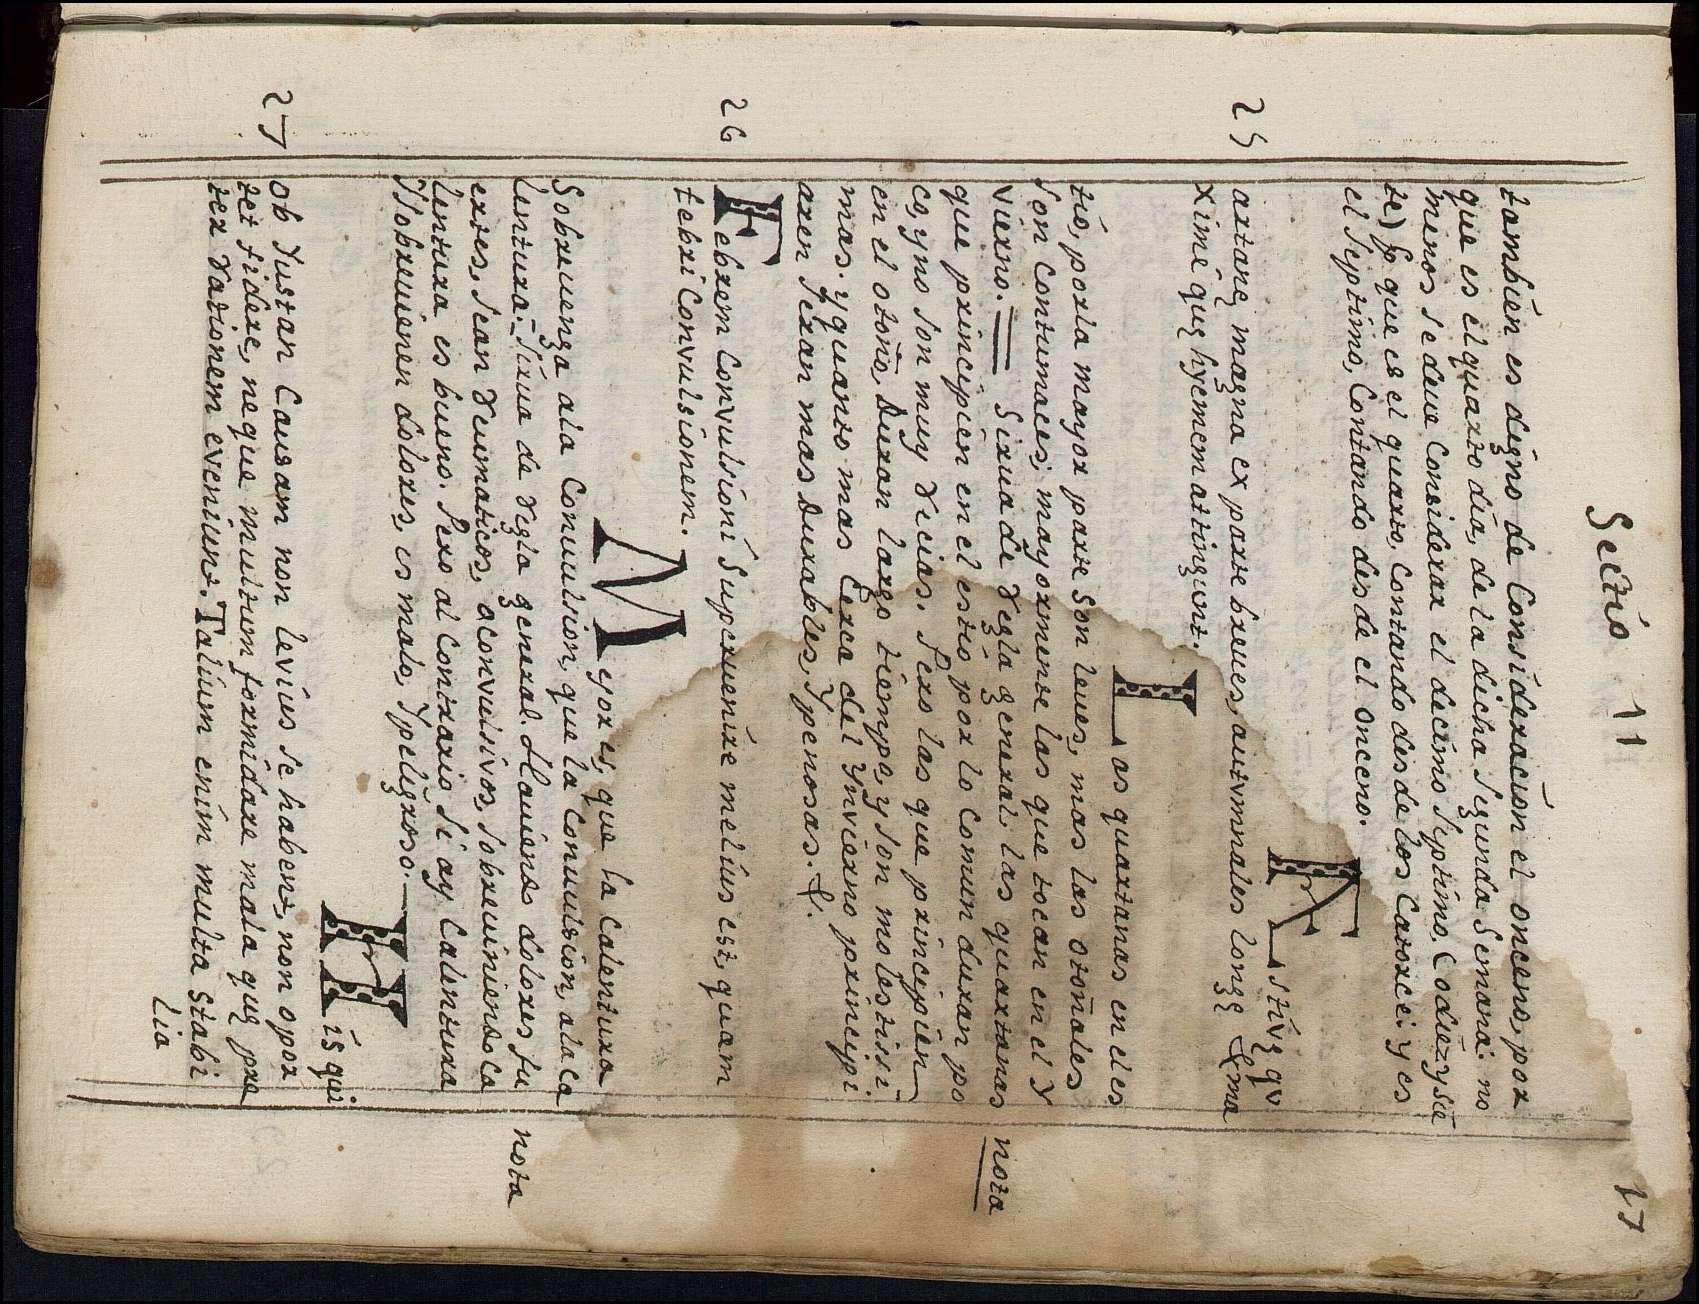 Sectio 11
17
tambien es digno de Consideracion el onceno, por
que es el quarto dia, de la dicha Segunda Semana: no
menos se deue Considerar el decimo Septimo. Co diez y sie
te) Po que es el quarto, Contando desde los Catorce: y es
el Septimo, Contando desde el onceno.
25
Æstivę qu
artanę magna ex parte breues, autvmnales longę & ma
Ximé quę hyemem attingunt.
Las quartanas en el es
tio, por la mayor parte son leues, mas las otoñales
Son Contumaces; mayormente las que tocan en el Y
Vierno. Sirua de regla general. las quartanas
nota
que principien en el estio por lo Comun duran po
co, y no son muy recias. Pero las que principien
en el otoño, Duran largo tiempo, y son molestissi
mas. y quanto mas Cerca del Ynvierno principi
aren Seran mas Durables, Y penosas. &.
26
Febrem Convulsioni Supervenire melius est, quam
febri Convulsionem.
Mejor es, que la Calentura
Sobreuenga a la Conuulsion, que la Conuulsion, a la Ca
lentura. Sirua de regla general. Hauiendo dolores fu
nota
ertes, Sean reumaticos, o convulsivos, Sobreuiniendo Ca
lentura es bueno. Pero al Contrario Si ay Calentura
Y Sobreuienen dolores, es malo, Y peligroso.
27
His qui
ob Justan Causam non levius se habent, non opor
tet fidere, neque multum formidare mala quę prę
ter rationem eveniunt. Talium enim multa Stabi
lia